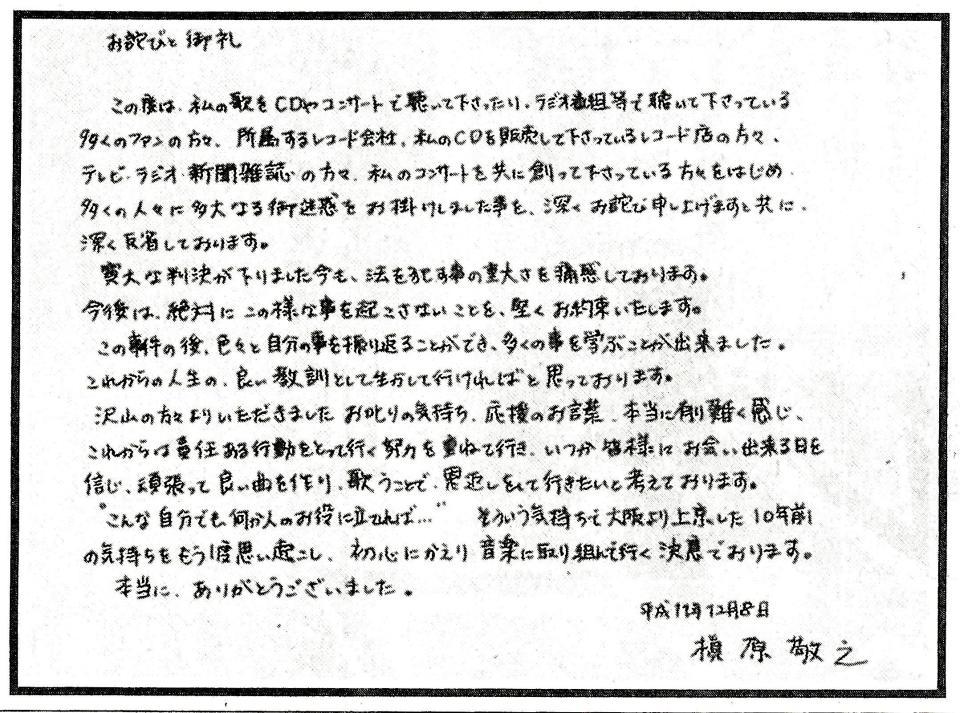 お詫びと御礼
この度は、私の歌をCDやコンサートで聴いて下さったり、ラジオ番組等で聴いて下さっている
多くのファンの方々、所属するレコード会社、私のCDを販売して下さっているレコード店の方々、
テレビ・ラジオ・新聞雑誌の方々、私のコンサートを共に創って下さっている方々をはじめ、
多くの人々に多大なる御迷惑をお掛けしました事を、深くお詫び申し上げますと共に、
深く反省しております。
寛大な判決が下りました今も、法を犯す事の重大さを痛感しております。
今後は、絶対にこの様な事を起こさないことを、堅くお約束いたします。
この事件の後、色々と自分の事を振り返ることができ、多くの事を学ぶことが出来ました。
これからの人生の、良い教訓として生かして行ければと思っております。
沢山の方々よりいただきましたお叱りの気持ち、応援のお言葉、本当に有り難く感じ、
これからは責任ある行動をとって行く努力を重ねて行き、いつか皆様にお会い出来る日を
信じ、頑張って良い曲を作り、歌うことで、恩返しをして行きたいと考えております。
"こんな自分でも、何か人のお役に立てれば…" そういう気持ちで大阪より上京した10年前
の気持ちをもう1度思い起こし、初心にかえり音楽に取り組んで行く決意でおります。
本当に、ありがとうございました。
平成11年12月8日
槇原敬之